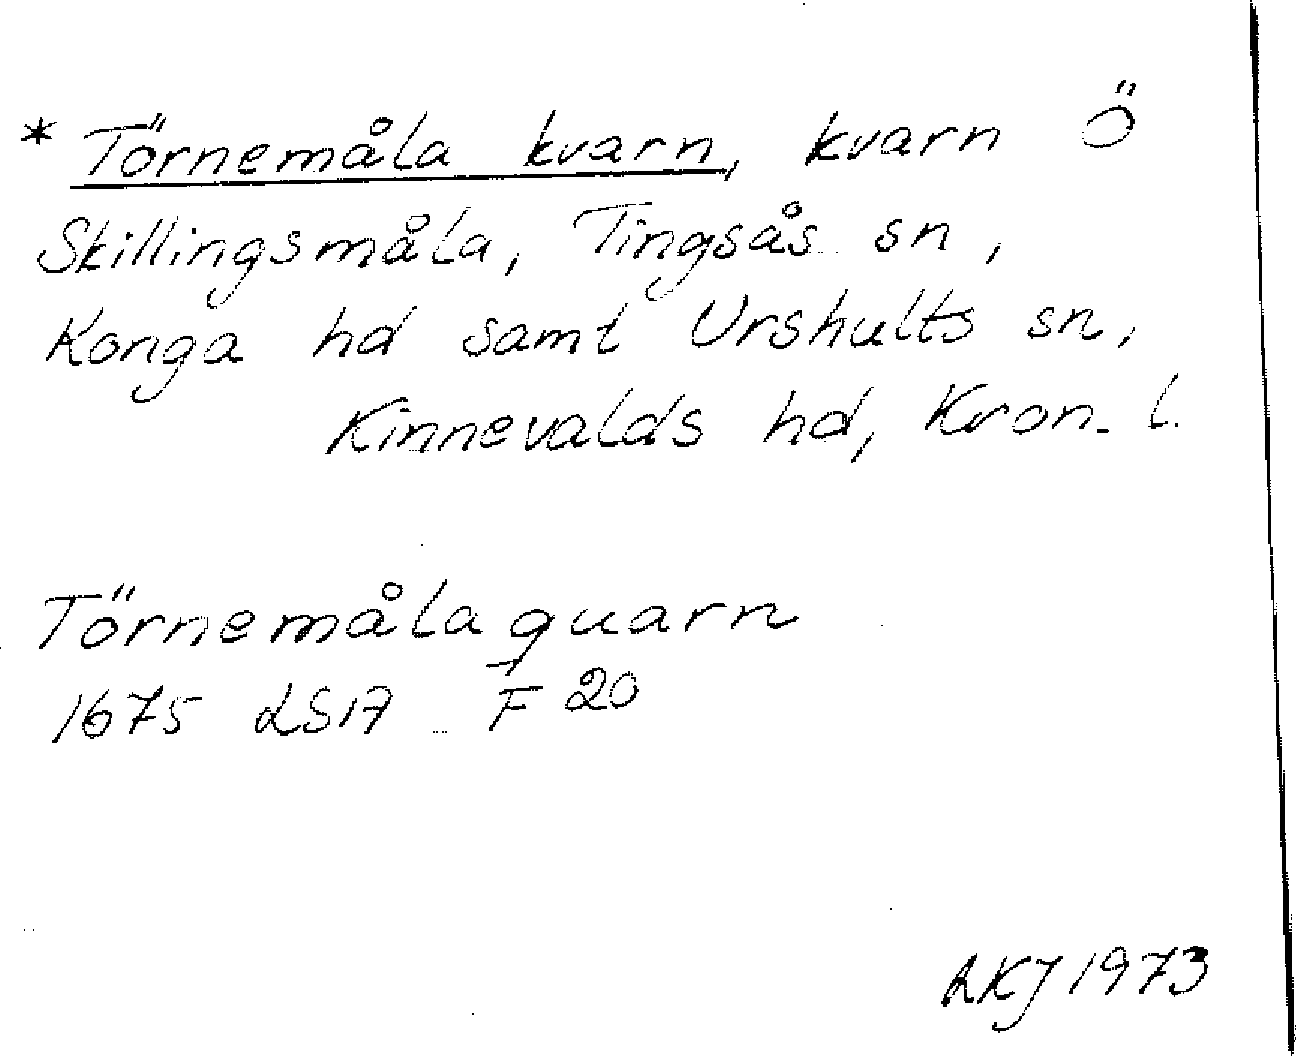 * Törnemåla kvarn, kvarn Ö
Skillingsmåla, Tingsås sn,
Konga hd samt Urshults sn,
Kinnevalds hd, Kron. l.
Törnemåla quarn
1675 LSA F 20
LKJ 1973